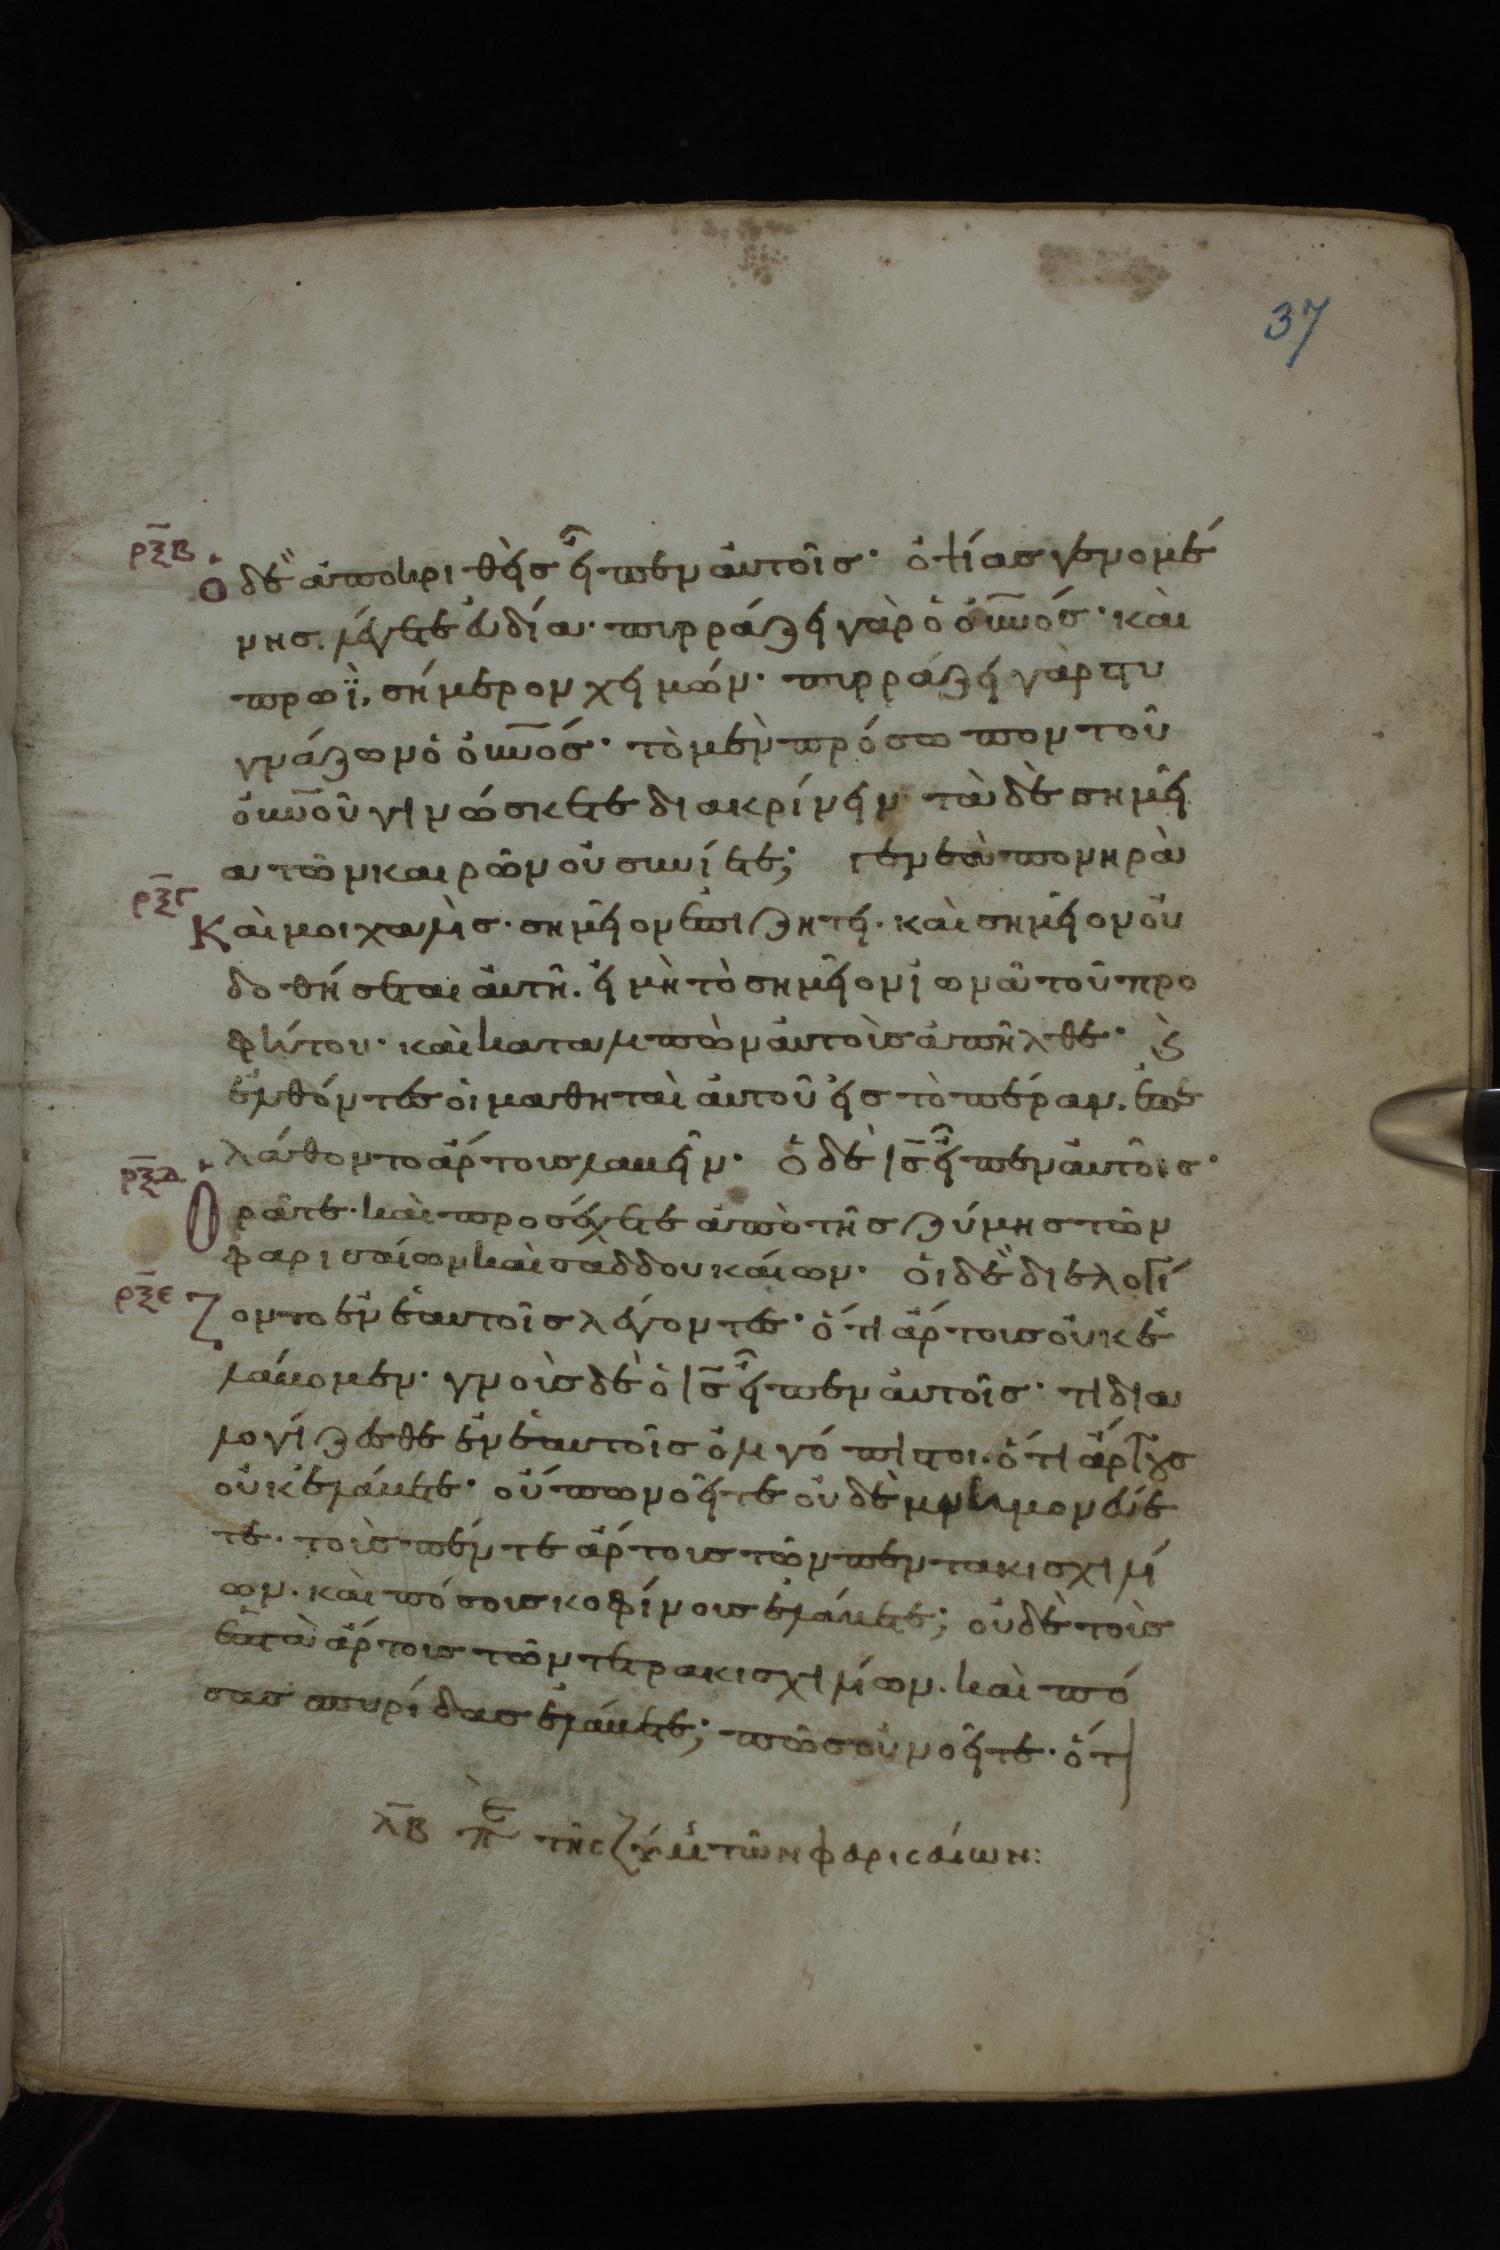 37
ρξβ ὁ δὲ ἀποκριθεὶς εἶπεν αὐτοῖς· ὀψίας γενομέ
νης. λέγετε εὐδία· πυρράζει γὰρ ὁ οὐνός· καὶ
πρωΐ, σήμερον χειμών· πυρράζει γὰρ στυ
γνάζων ὁ οὐνός· τὸ μὲν πρόσωπον τοῦ
οὐνοῦ γινώσκετε διακρίνειν τὰ δὲ σημεῖ
α τῶν καιρῶν οὐ συνίετε; γενεὰ πονηρὰ
ρξγ Καὶ μοιχαλὶς· σημεῖον ἐπιζητεῖ· καὶ σημεῖον οὐ
δοθήσεται αὐτῆ. εἰ μὴ τὸ σημεῖον ἰωνᾶ τοῦ προ
φήτου· καὶ καταλιπὼν αὐτοὺς ἀπῆλθε· ϗ
ἐλθόντες οἱ μαθηταὶ αὐτοῦ εἰς τὸ πέραν. ἐπε
λάθοντο ἄρτους λαβεῖν· ὁ δὲ ις εἶπεν αὐτοῖς·
ρξδ Ορᾶτε· καὶ προσέχετε ἀπὸ τῆς ζύμης τῶν
φαρισαίων καὶ σαδδουκαίων· οἱ δὲ διελογί
ρξε ζοντο ἐν ἑαυτοῖς λέγοντες· ὅτι ἄρτους οὐκ ἐ
λάβομεν· γνοὺς δὲ ὁ ις εἶπεν αὐτοῖς· τί δια
λογίζεσθε ἐν ἑαυτοῖς ὀλιγόπιστοι· ὅτι ἄρτους
οὐκ ἐλάβετε· οὔπω νοεῖτε οὐδὲ μνημονεύε
τε· τοὺς πέντε ἄρτους τῶν πεντακισχιλί
ων· καὶ πόσους κοφίνους ἐλάβετε; οὐδὲ τοὺς
ἑπτὰ ἄρτους τῶν τετρακισχιλίων· καὶ πό
σας σπυρίδας ἐλάβετε; πῶς οὐ νοεῖτε· ὅτι
λβ πε τῆς ζύμης τῶν φαρισαίων: